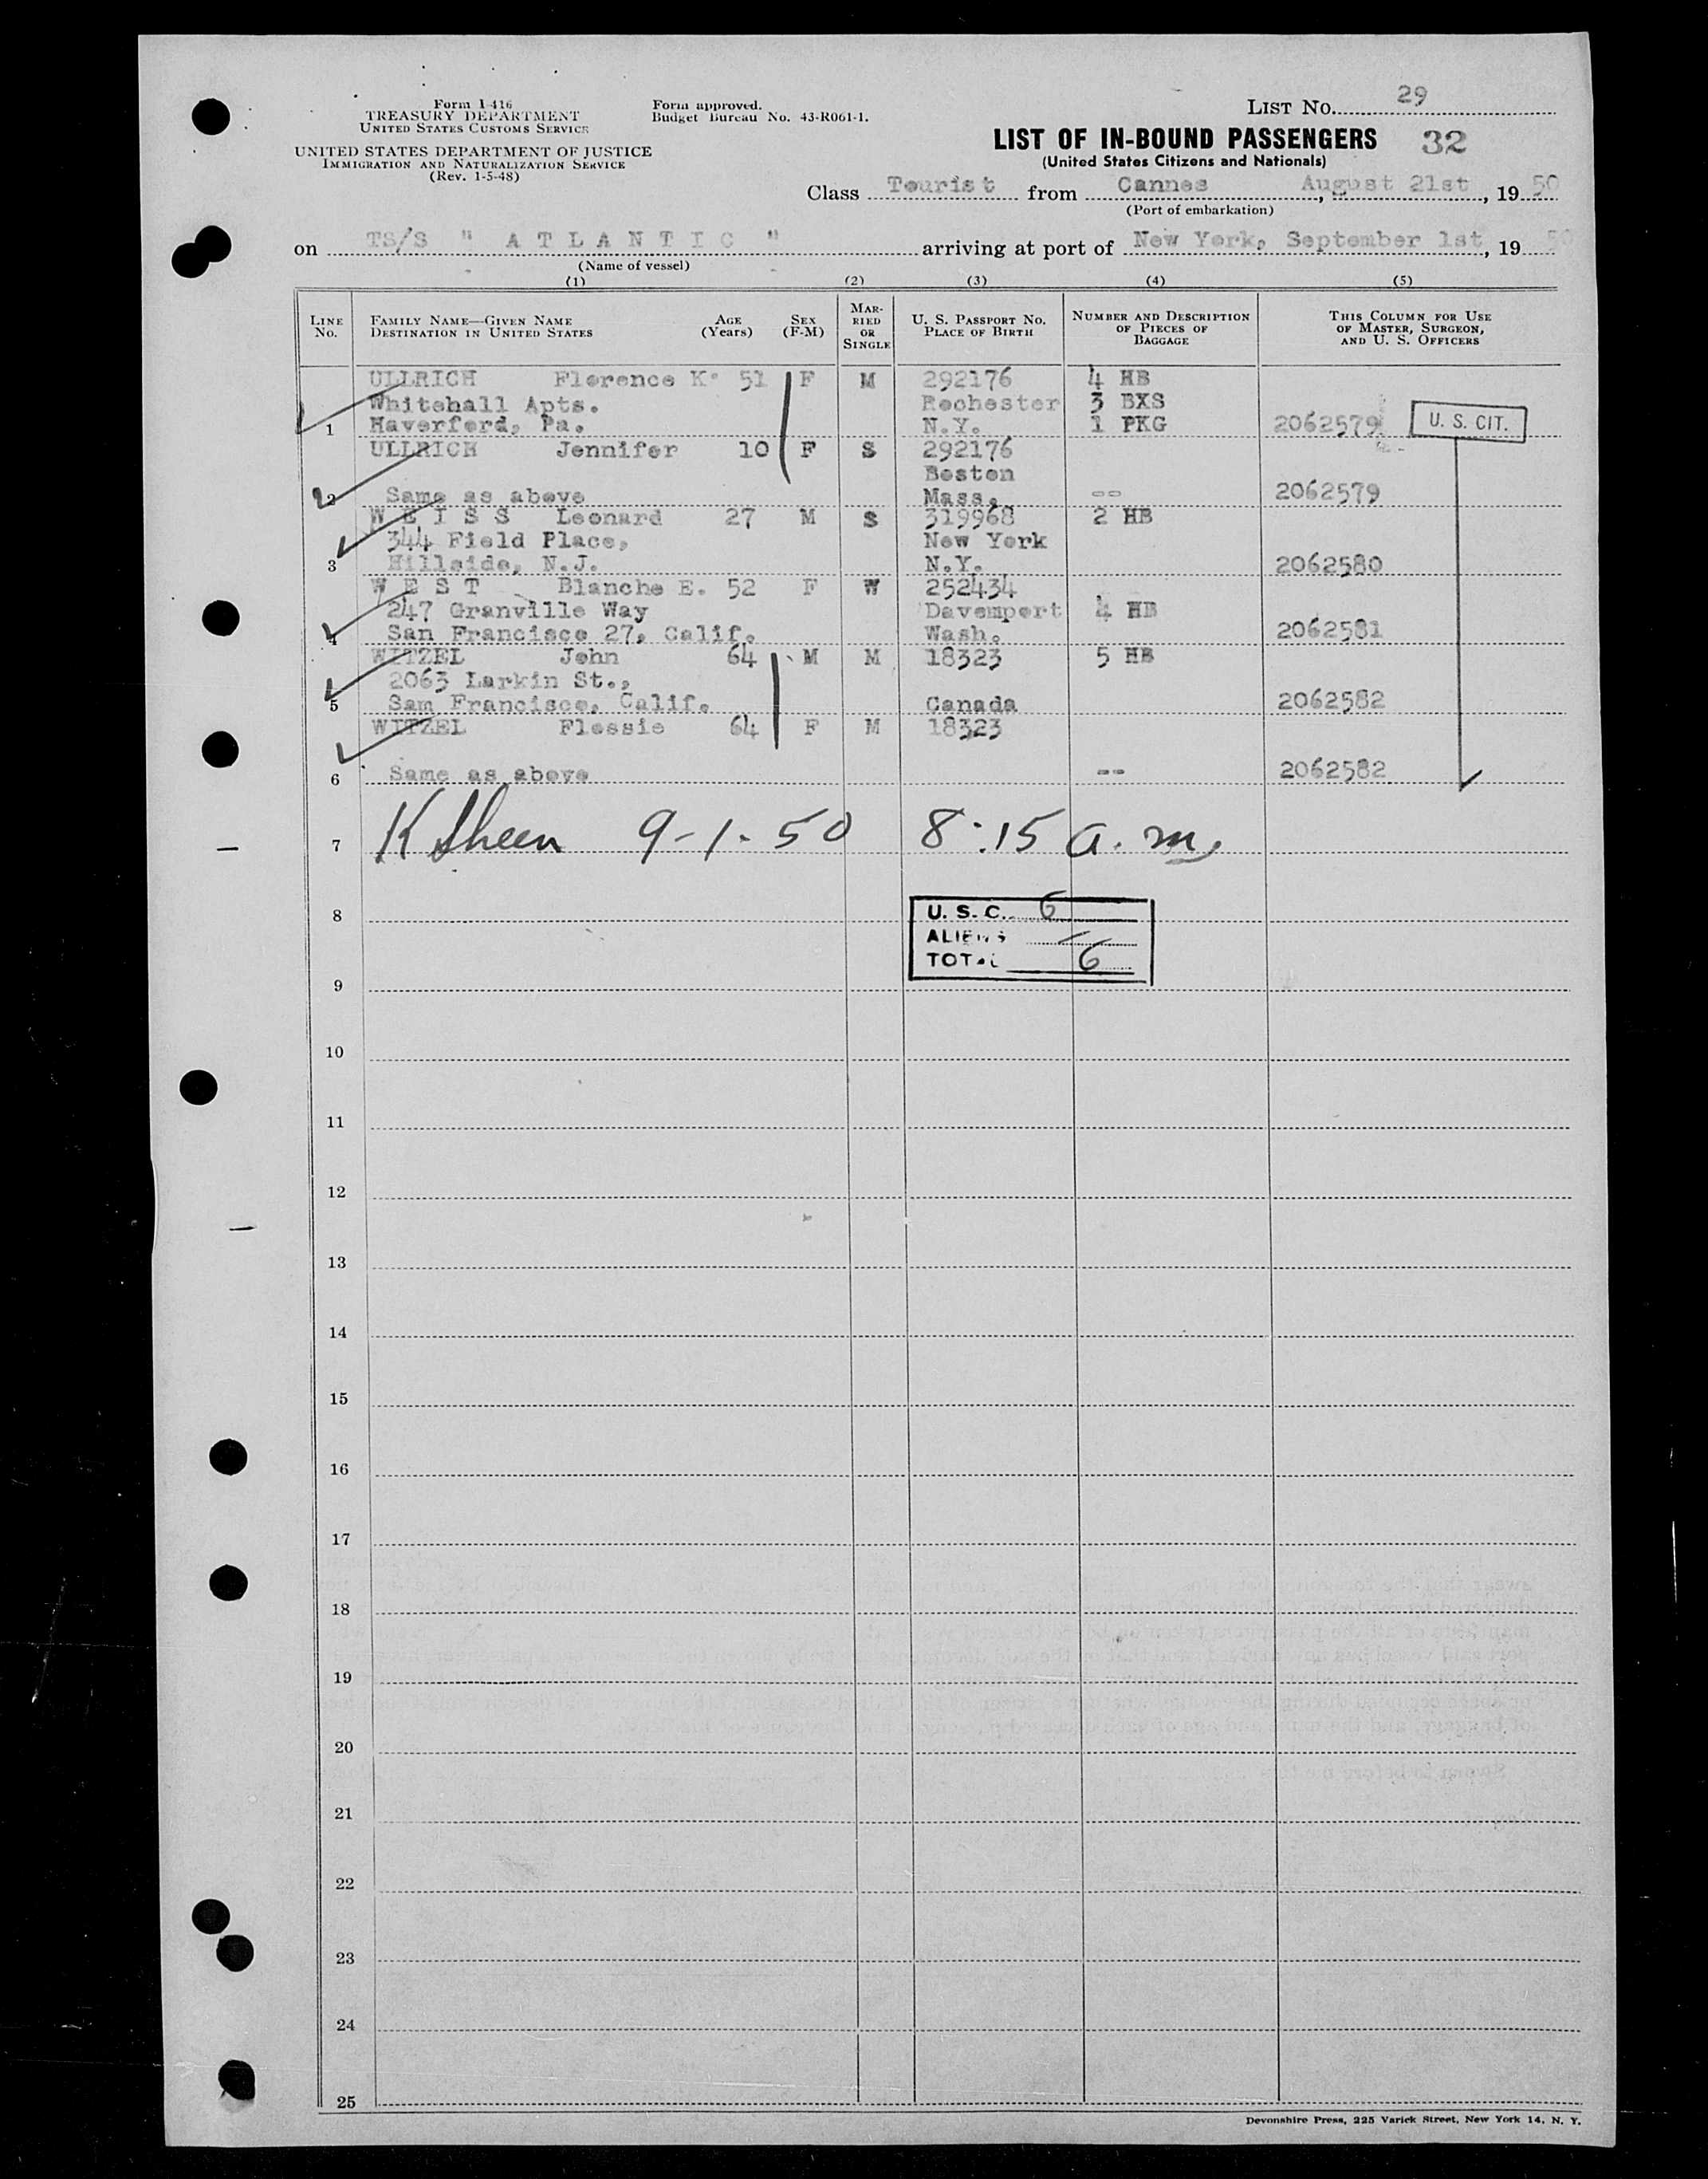 Form I-416
TREASURY DEPARTMENT
UNITED STATES CUSTOMS SERVICE
UNITED STATES DEPARTMENT OF JUSTICE
IMMIGRATION AND NATURALIZATION SERVICE
(Rev. 1-5-48)
Form approved.
Budget Bureau No. 43-R061-1.
LIST NO. 29
LIST OF IN-BOUND PASSENGERS 32
(United States Citizens and Nationals)
Class Tourist from Cannes, August 21st, 19 50
(Port of embarkation)
on TS/S " A T L A N T I C " arriving at port of New York, September 1st, 19 50
(Name of vessel)
(1) (2) (3) (4) (5)
LINE NO.
FAMILY NAME—GIVEN NAME
DESTINATION IN UNITED STATES
AGE
(Years)
SEX
(F-M)
MARRIED OR SINGLE
U. S. PASSPORT NO.
PLACE OF BIRTH
NUMBER AND DESCRIPTION
OF PIECES OF
BAGGAGE
THIS COLUMN FOR USE
OF MASTER, SURGEON,
AND U. S. OFFICERS
ULLRICH Florence K. 51 F M 292176 4 HB
Whitehall Apts. Rochester 3 BXS
1 Haverford, Pa. N.Y. 1 PKG 2062579 U. S. CIT.
ULLRICH Jennifer 10 F S 292176
Boston
2 Same as above Mass. -- 2062579
W E I S S Leonard 27 M S 319968 2 HB
344 Field Place, New York
3 Hillside, N.J. N.Y. 2062580
W E S T Blanche E. 52 F W 252434
247 Granville Way Davenport 4 HB
4 San Francisco 27, Calif. Wash. 2062581
WITZEL John 64 M M 18323 5 HB
2063 Larkin St.,
5 San Francisco, Calif. Canada 2062582
WITZEL Flossie 64 F M 18323
6 Same as above -- 2062582
7 K Sheen 9-1-50 8:15 a.m.
8
U. S. C. 6
ALIENS —
TOTAL 6
9
10
11
12
13
14
15
16
17
18
19
20
21
22
23
24
25
Devonshire Press, 225 Varick Street, New York 14, N. Y.